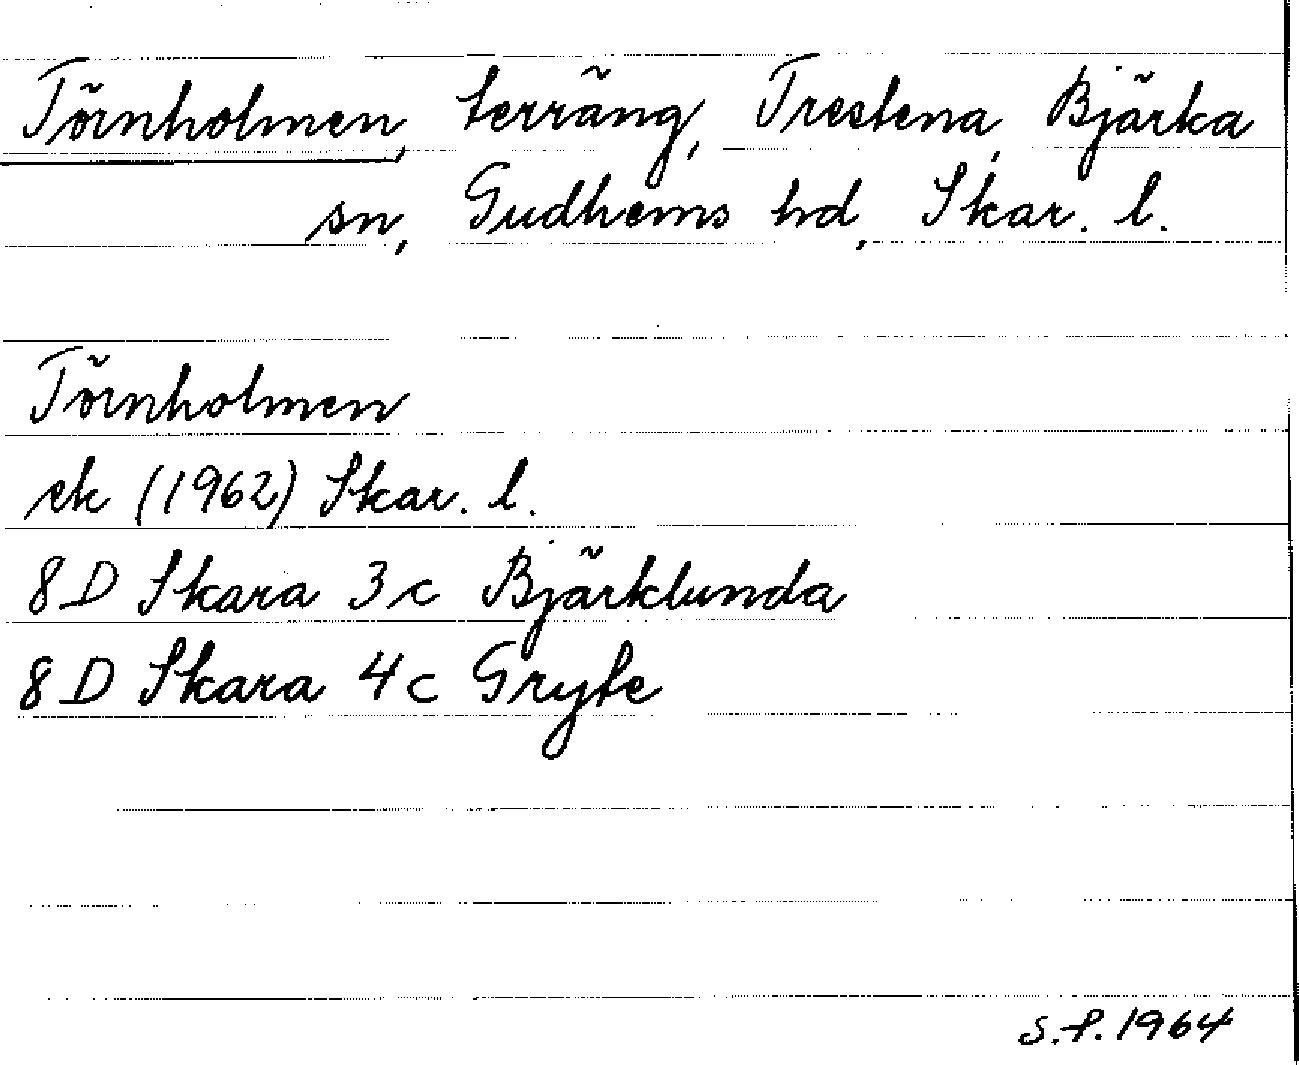 Törnholmen, terräng, Trestena, Bjärka
sn, Gudhems hd, Skar. l.
Törnholmen
ek (1962) Skar. l.
8D Skara 3c Bjärklunda
8D Skara 4c Gryte
S.F. 1964